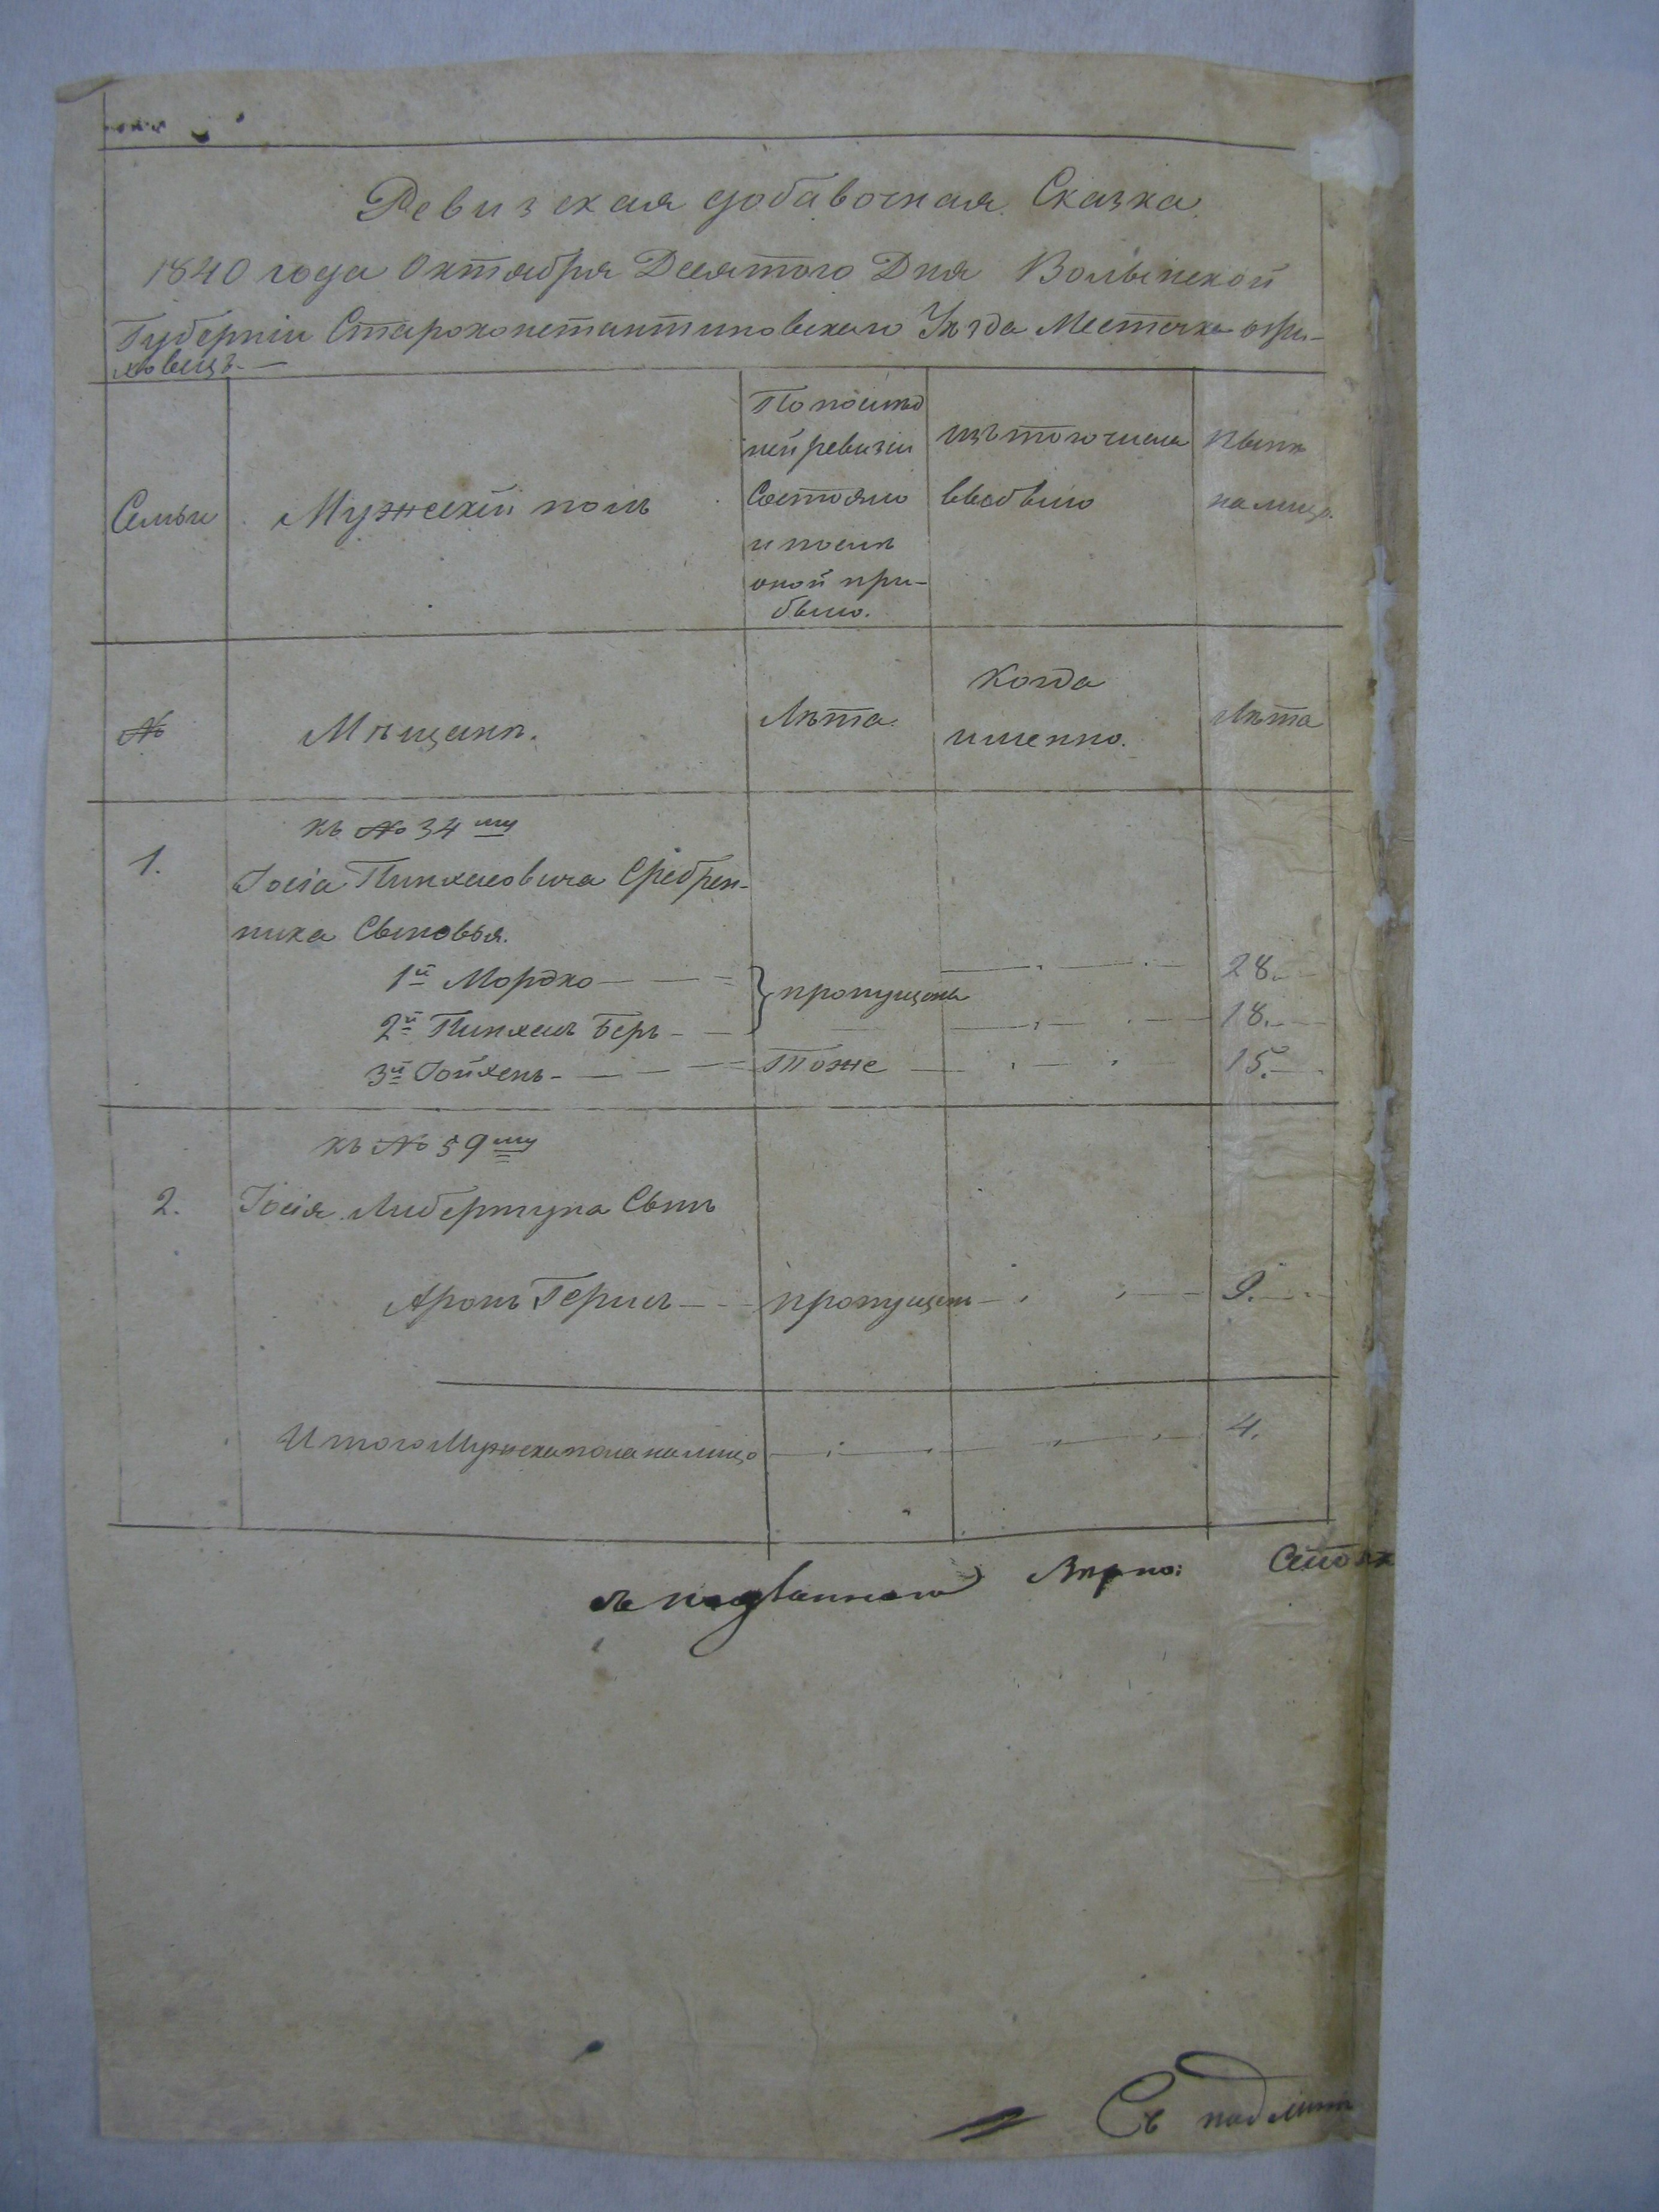 Ревизская добавочная Сказка
1840 года Октября Десятого Дня Волынской
Губерніи Староконстантиновскаго Уѣзда Местечка Ори-
ховецъ. —
Семьи
Мужескій полъ
По послед
ней ревизіи
Состояло
и послѣ
оной при-
было.
изъ того числа
выбыло
нынѣ
на лицо.
№
Мѣщанъ.
Лѣта.
Когда
именно.
Лѣта
къ № 34му
1.
Іосія Пинхасовича Сребрен-
ника Сыновья.
1й Мордко — — пропущены — 28.
2й Пинхасъ Беръ — — 18.
3й Іойхенъ — — тоже — 15.
къ № 59му
2. Іосія Либертуна Сынъ
Аронъ Гершъ — — пропущенъ — 9.
Итого Мужеска пола на лицо — 4.
Вѣрно:
Съ подлин